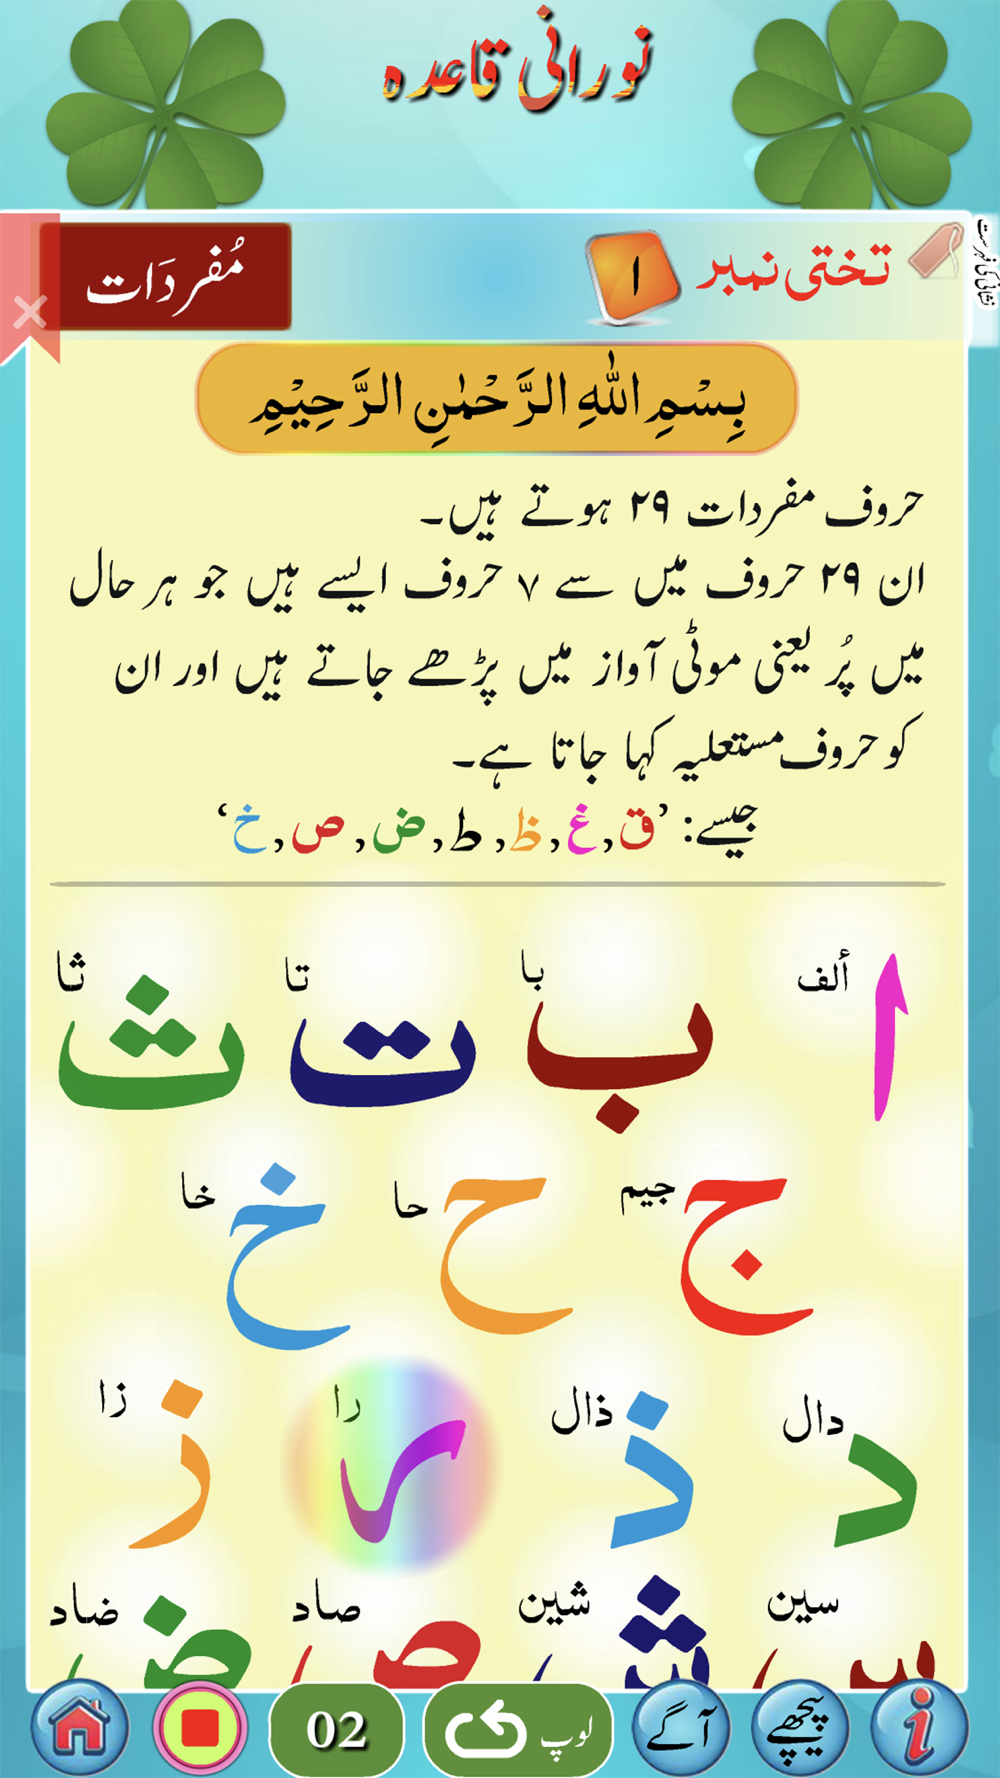 نورانی قاعدہ
نشانی کی فہرست
تختی نمبر ۱ مُفرِدَات
بِسْمِ اللّٰهِ الرَّحْمٰنِ الرَّحِيْمِ
حروف مفردات ۲۹ ہوتے ہیں۔
ان ۲۹ حروف میں سے ۷ حروف ایسے ہیں جو ہر حال
میں پُر یعنی موٹی آواز میں پڑھے جاتے ہیں اور ان
کو حروف مستعلیہ کہا جاتا ہے۔
جیسے: ’ق, غ, ظ, ط, ض, ص, خ‘
ألف با تا ثا
ا ب ت ث
جیم حا خا
ج ح خ
دال ذال را زا
د ذ ر ز
سین شین صاد ضاد
س ش ص ض
پیچھے آگے لوپ 02